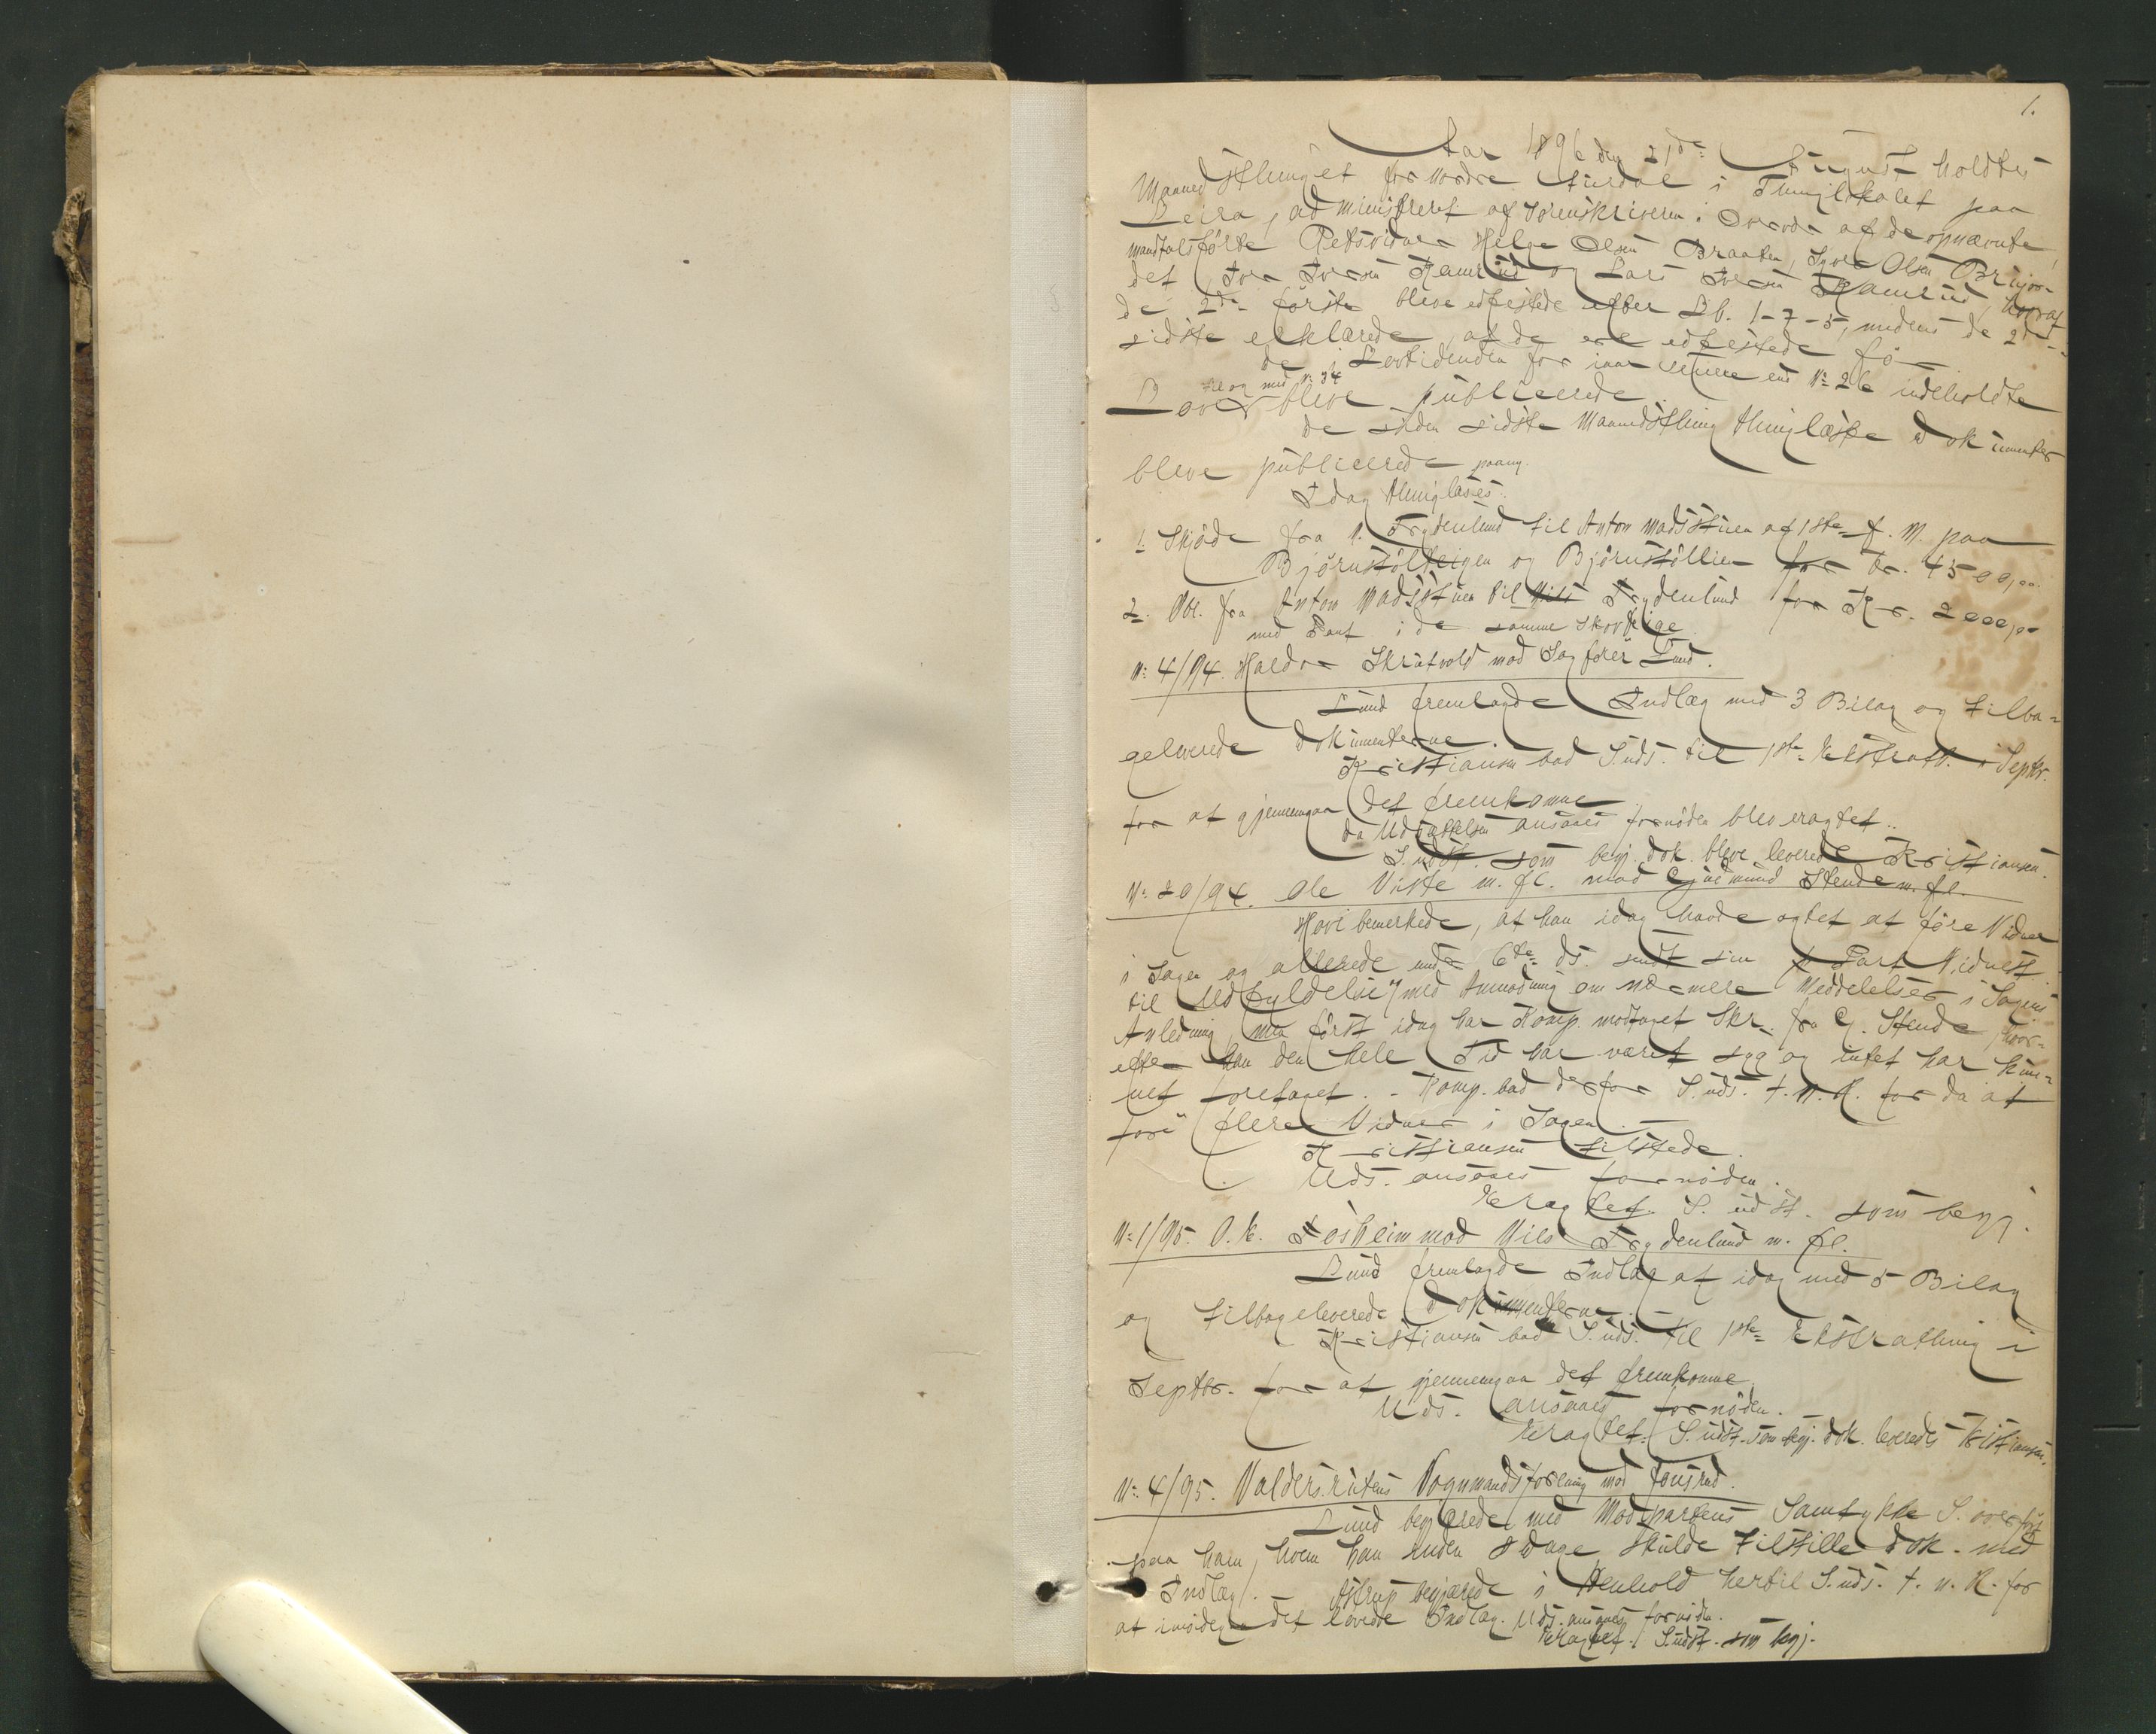 1.
Aar 1896 den 21de August holdtes
Maanedsthinget for Nordre Aurdal i Thinglokalet paa
Leira, administreret af Sorenskriveren i Overvær af de opnævnte
mandtalsførte Retsvidner Helge Olsen Braaten, Iver Olsen
det Iver Iversen og Lars Iversen hvoraf
de 2de første bleve edfestede efter Lb. 1-7-5, medens de 2de
sidste erklærede, at de ere edfestede før
de i Lovtidenden for iaar senere end No 26 indeholdte
til og med No 34
Love bleve publicerede.
de siden sidste Maanedsthing thinglæste Dokumenter
bleve publicerede paany.
Idag thinglæstes:
1. Skjøde fra N. Frydenlund til Anton Madsstuen af 1ste f. M. paa
Bjørnstølteigen og Bjørnstøllien for Kr. 4500,00.
2. Obl. fra Anton Madsstuen til Nils Frydenlund for Kr. 2000,00
med Pant i de samme Skovteige.
No 4/94. Haldor Skrutvold mod Sagfører Lund.
Lund fremlagde Indlæg med 3 Bilag og tilba-
geleverede Dokumenterne.
Kristiansen bad S. uds. til 1ste Extrath. i Septbr.
for at gjennemgaa det fremkomne
da Udsættelsen ansaaes fornøden blev eragtet:
S. udst. som begj. Dok. bleve leverede Kristiansen.
No 20/94. Ole Viste m. fl. mod Gudmund Stende m. fl.
Hovi bemerkede, at han idag havde agtet at føre Vidner
i Sagen og allerede under 6te ds. sendt sin Part Vidnest.
til Udfyldelse med Anmodning om nærmere Meddelelser i Sagens
Anledning, men først idag har Komp. modtaget Skr. fra G. Stende hvor-
efter han den hele Tid har været syg og intet har kun-
net foretaget. - Komp. bad derfor S. uds. t. n. R. for da at
føre flere Vidner i Sagen. -
Kristiansen tilstede.
Uds. ansaaes fornøden.
Eragtet: S. udst. som begj.
No 1/95. O. K. Fosheim mod Nils Frydenlund m. fl.
Lund fremlagde Indlæg af idag med 5 Bilag
og tilbageleverede Dokumenterne. -
Kristiansen bad S. uds. til 1ste Extrathing i
Septbr. for at gjennemgaa det fremkomne
Uds. ansaaes fornøden. -
Eragtet: S. udst. som begj. Dok. leveredes Kristiansen.
No 4/95. Valdersrutens Vognmandsforening mod Jonsrud.
Lund begjærede med Modpartens Samtykke S. overført
paa ham, hvem han inden 8 Dage skulde tilstille Dok. med
Indlæg. - Astrup begjærede i Henhold hertil S. uds. t. n. R. for
at imødegaa det lovede Indlæg. Uds. ansaaes fornøden.
Eragtet: S. udst. som begj.